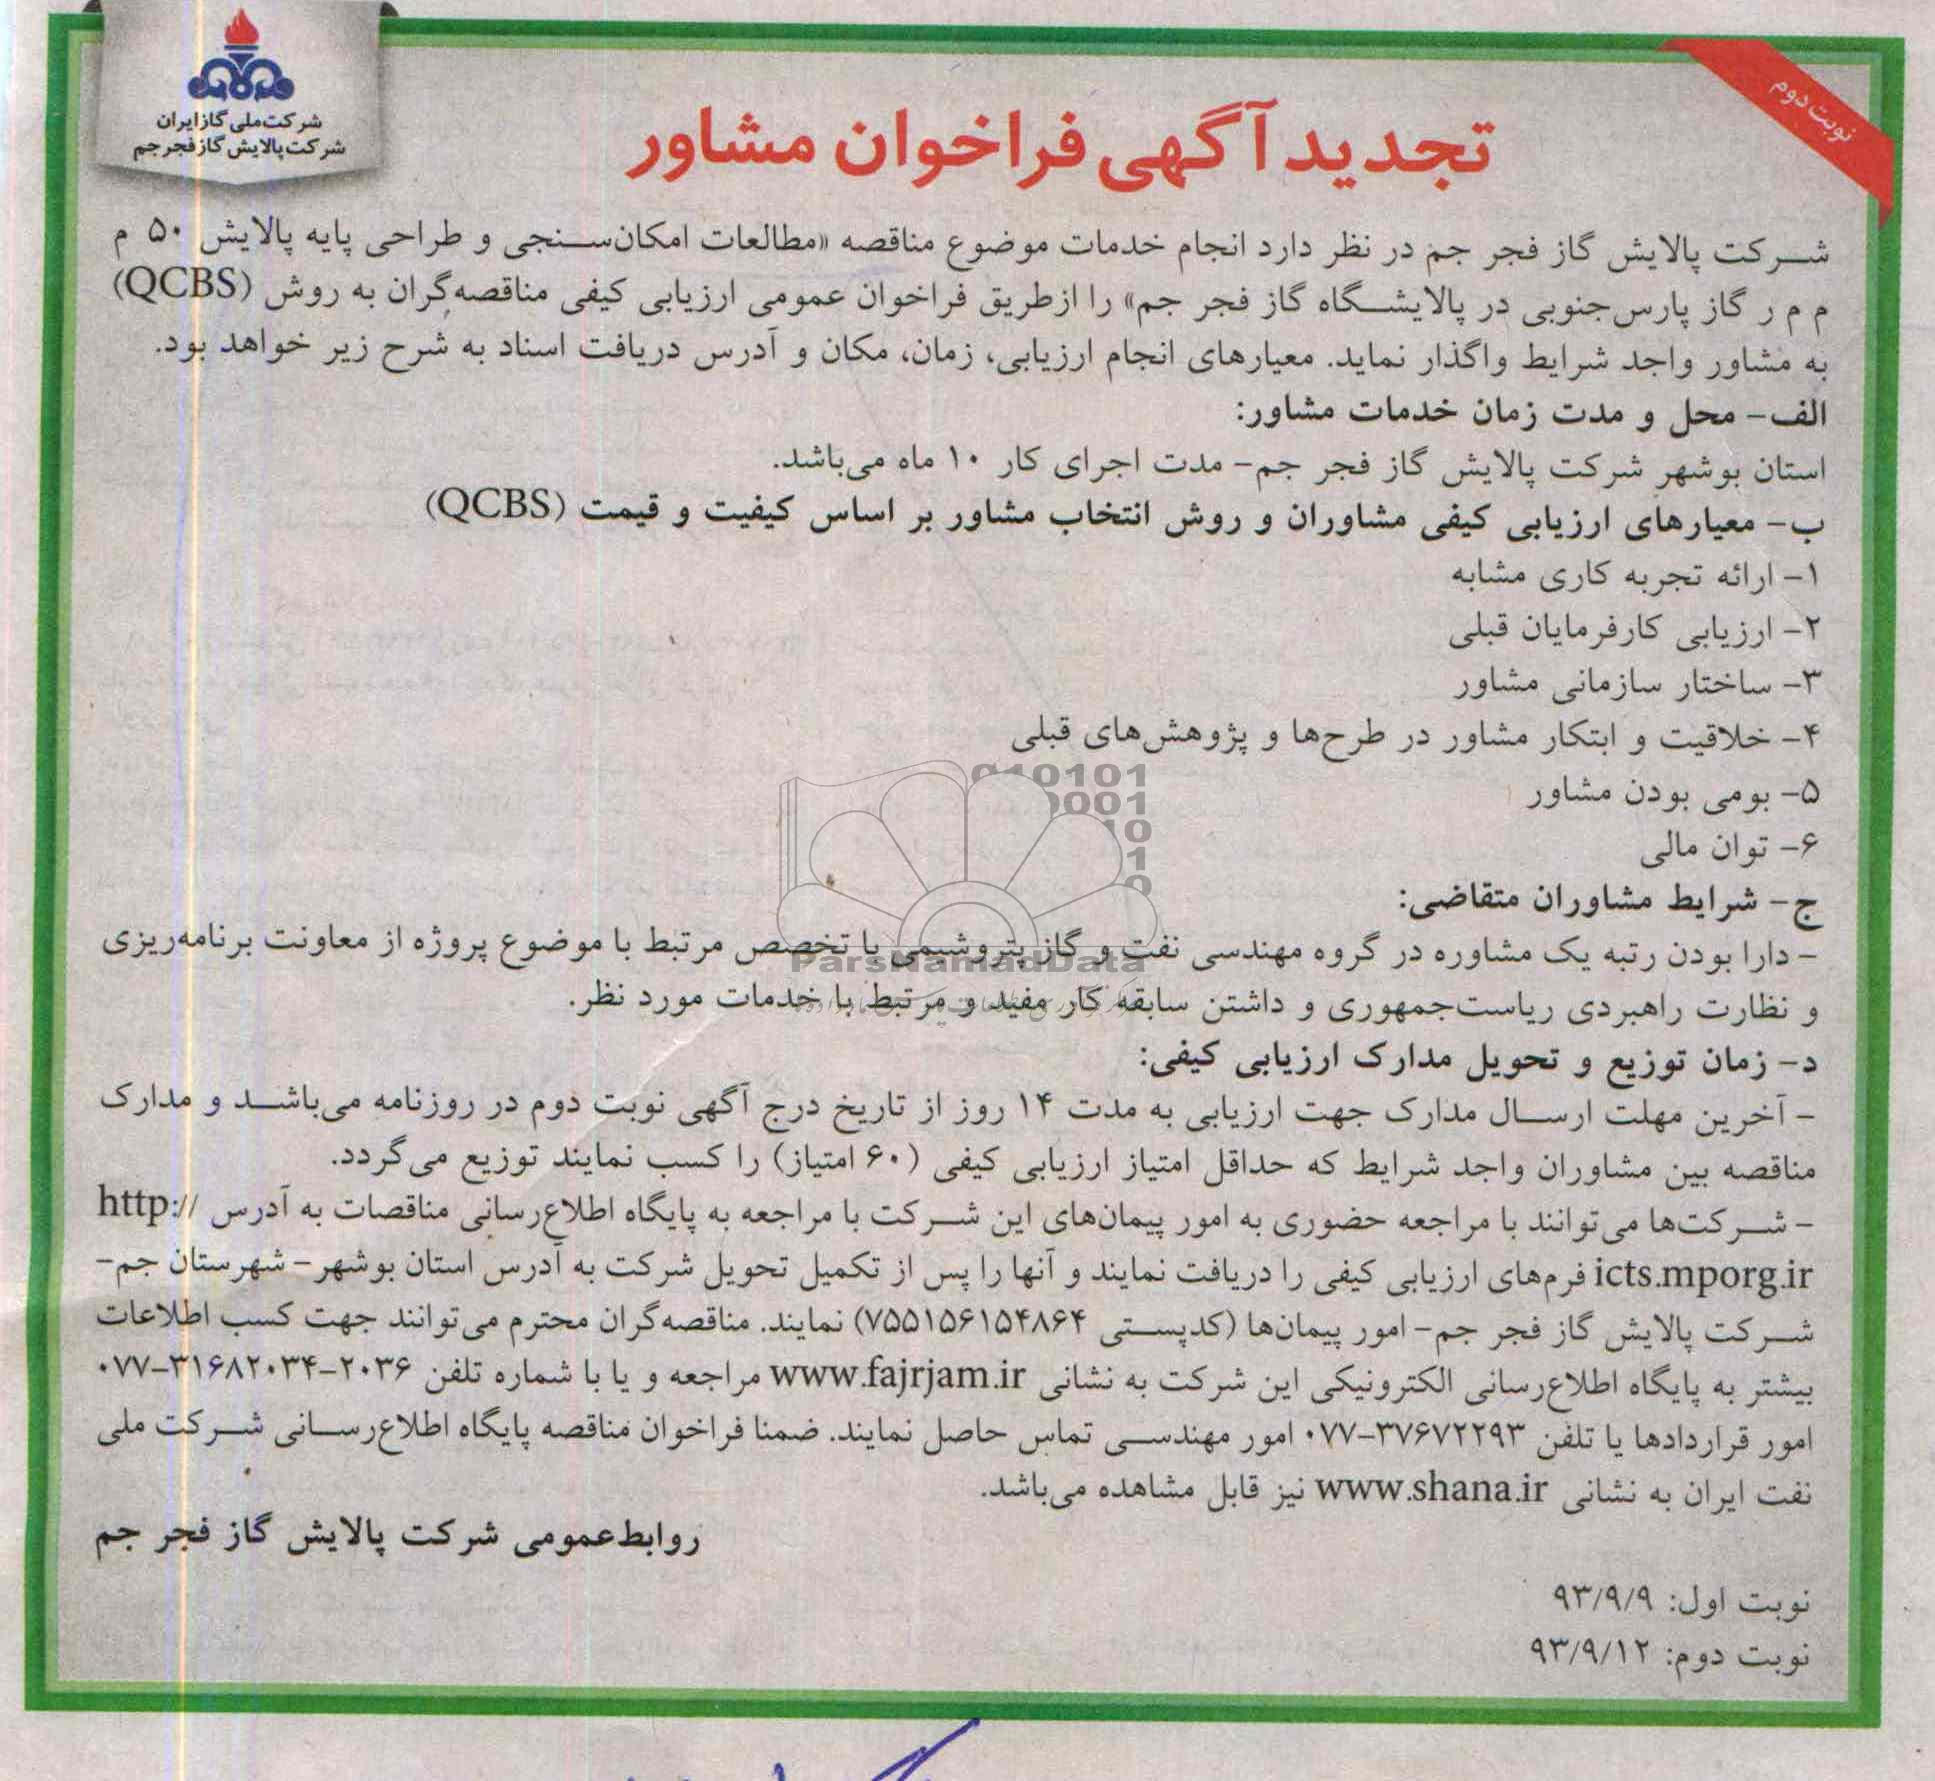 شرکت ملی گاز ایران
شرکت پالایش گاز فجر جم
نوبت دوم
تجدید آگهی فراخوان مشاور
شرکت پالایش گاز فجر جم در نظر دارد انجام خدمات موضوع مناقصه «مطالعات امکان‌سنجی و طراحی پایه پالایش ۵۰ م
م م ر گاز پارس‌جنوبی در پالایشگاه گاز فجر جم» را ازطریق فراخوان عمومی ارزیابی کیفی مناقصه‌گران به روش (QCBS)
به مشاور واجد شرایط واگذار نماید. معیارهای انجام ارزیابی، زمان، مکان و آدرس دریافت اسناد به شرح زیر خواهد بود.
الف- محل و مدت زمان خدمات مشاور:
استان بوشهر شرکت پالایش گاز فجر جم- مدت اجرای کار ۱۰ ماه می‌باشد.
ب- معیارهای ارزیابی کیفی مشاوران و روش انتخاب مشاور بر اساس کیفیت و قیمت (QCBS)
۱- ارائه تجربه کاری مشابه
۲- ارزیابی کارفرمایان قبلی
۳- ساختار سازمانی مشاور
۴- خلاقیت و ابتکار مشاور در طرح‌ها و پژوهش‌های قبلی
۵- بومی بودن مشاور
۶- توان مالی
ج- شرایط مشاوران متقاضی:
- دارا بودن رتبه یک مشاوره در گروه مهندسی نفت و گاز پتروشیمی با تخصص مرتبط با موضوع پروژه از معاونت برنامه‌ریزی
و نظارت راهبردی ریاست‌جمهوری و داشتن سابقه کار مفید و مرتبط با خدمات مورد نظر.
ParsNamadData
د- زمان توزیع و تحویل مدارک ارزیابی کیفی:
- آخرین مهلت ارسال مدارک جهت ارزیابی به مدت ۱۴ روز از تاریخ درج آگهی نوبت دوم در روزنامه می‌باشد و مدارک
مناقصه بین مشاوران واجد شرایط که حداقل امتیاز ارزیابی کیفی (۶۰ امتیاز) را کسب نمایند توزیع می‌گردد.
- شرکت‌ها می‌توانند با مراجعه حضوری به امور پیمان‌های این شرکت با مراجعه به پایگاه اطلاع‌رسانی مناقصات به آدرس http://
icts.mporg.ir فرم‌های ارزیابی کیفی را دریافت نمایند و آنها را پس از تکمیل تحویل شرکت به آدرس استان بوشهر- شهرستان جم-
شرکت پالایش گاز فجر جم- امور پیمان‌ها (کدپستی ۷۵۵۱۵۶۱۵۴۸۶۴) نمایند. مناقصه‌گران محترم می‌توانند جهت کسب اطلاعات
بیشتر به پایگاه اطلاع‌رسانی الکترونیکی این شرکت به نشانی www.fajrjam.ir مراجعه و یا با شماره تلفن ۲۰۳۶-۰۷۷-۳۱۶۸۲۰۳۴
امور قراردادها یا تلفن ۳۷۶۷۲۲۹۳-۰۷۷ امور مهندسی تماس حاصل نمایند. ضمنا فراخوان مناقصه پایگاه اطلاع‌رسانی شرکت ملی
نفت ایران به نشانی www.shana.ir نیز قابل مشاهده می‌باشد.
روابط‌عمومی شرکت پالایش گاز فجر جم
نوبت اول: ۹۳/۹/۹
نوبت دوم: ۹۳/۹/۱۲